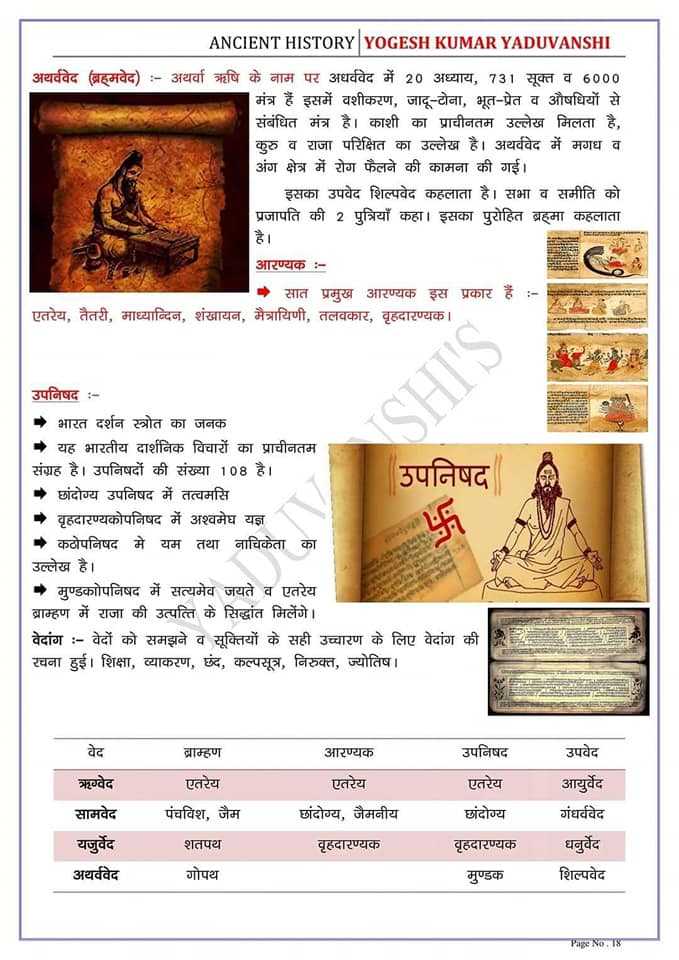 ANCIENT HISTORY YOGESH KUMAR YADUVANSHI
अथर्ववेद (ब्रह्मवेद) :– अथर्वा ऋषि के नाम पर अधर्ववेद में 20 अध्याय, 731 सूक्त व 6000
मंत्र हैं इसमें वशीकरण, जादू–टोना, भूत–प्रेत व औषधियों से
संबंधित मंत्र है। काशी का प्राचीनतम उल्लेख मिलता है,
कुरु व राजा परिक्षित का उल्लेख है। अथर्ववेद में मगध व
अंग क्षेत्र में रोग फैलने की कामना की गई।
इसका उपवेद शिल्पवेद कहलाता है। सभा व समीति को
प्रजापति की 2 पुत्रियाँ कहा। इसका पुरोहित ब्रह्मा कहलाता
है।
आरण्यक :–
➡ सात प्रमुख आरण्यक इस प्रकार हैं :–
एतरेय, तैतरी, माध्यान्दिन, शंखायन, मैत्रायिणी, तलवकार, वृहदारण्यक।
उपनिषद :–
➡ भारत दर्शन स्त्रोत का जनक
➡ यह भारतीय दार्शनिक विचारों का प्राचीनतम
संग्रह है। उपनिषदों की संख्या 108 है।
➡ छांदोग्य उपनिषद में तत्वमसि
➡ वृहदारण्यकोपनिषद में अश्वमेघ यज्ञ
➡ कठोपनिषद मे यम तथा नाचिकेता का
उल्लेख है।
➡ मुण्डकाोपनिषद में सत्यमेव जयते व एतरेय
ब्राम्हण में राजा की उत्पत्ति के सिद्धांत मिलेंगे।
उपनिषद
वेदांग :– वेदों को समझने व सूक्तियों के सही उच्चारण के लिए वेदांग की
रचना हुई। शिक्षा, व्याकरण, छंद, कल्पसूत्र, निरुक्त, ज्योतिष।
वेद ब्राम्हण आरण्यक उपनिषद उपवेद
ऋग्वेद एतरेय एतरेय एतरेय आयुर्वेद
सामवेद पंचविश, जैम छांदोग्य, जैमनीय छांदोग्य गंधर्ववेद
यजुर्वेद शतपथ वृहदारण्यक वृहदारण्यक धनुर्वेद
अथर्ववेद गोपथ मुण्डक शिल्पवेद
YADUVANSHI'S
Page No . 18